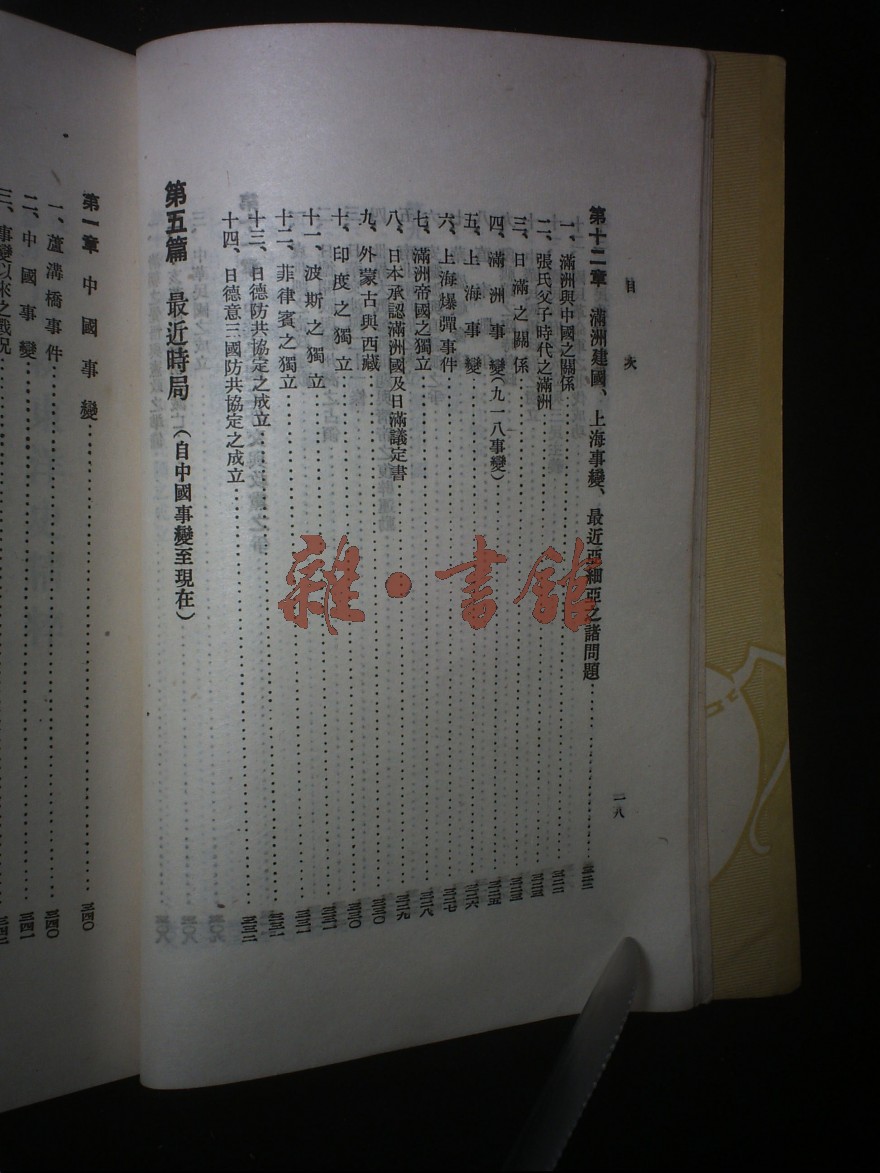 目次
第十二章 滿洲建國、上海事變、最近亞細亞之諸問題
一、滿洲與中國之關係
二、張氏父子時代之滿洲
三、日滿之關係
四、滿洲事變(九一八事變)
五、上海事變
六、上海爆彈事件
七、滿洲帝國之獨立
八、日本承認滿洲國及日滿議定書
九、外蒙古與西藏
十、印度之獨立
十一、波斯之獨立
十二、菲律賓之獨立
十三、日德防共協定之成立
十四、日德意三國防共協定之成立
第五篇 最近時局(自中國事變至現在)
一八
第一章 中國事變 三四〇
一、蘆溝橋事件 三四〇
二、中國事變 三四一
三、事變以來之戰況
雜·書館